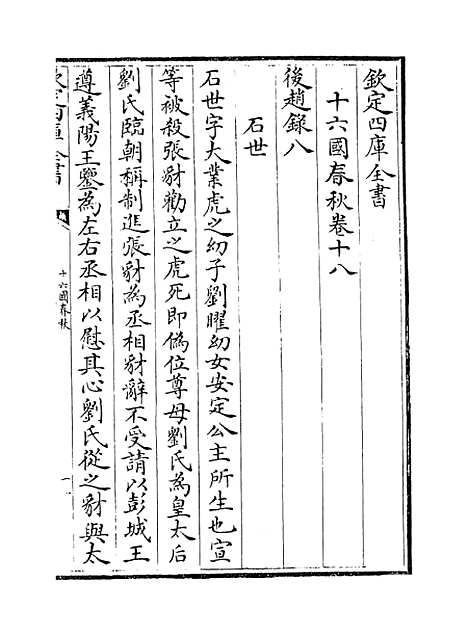 欽定四庫全書
十六國春秋卷十八
後趙錄八
石世
石世字大業虎之幼子劉曜幼女安定公主所生也宣
等被殺張豺勸立之虎死即僞位尊母劉氏為皇太后
劉氏臨朝稱制進張豺為丞相豺辭不受請以彭城王
遵義陽王鑒為左右丞相以慰其心劉氏從之豺與太
欽定四庫全書
十六國春秋
一